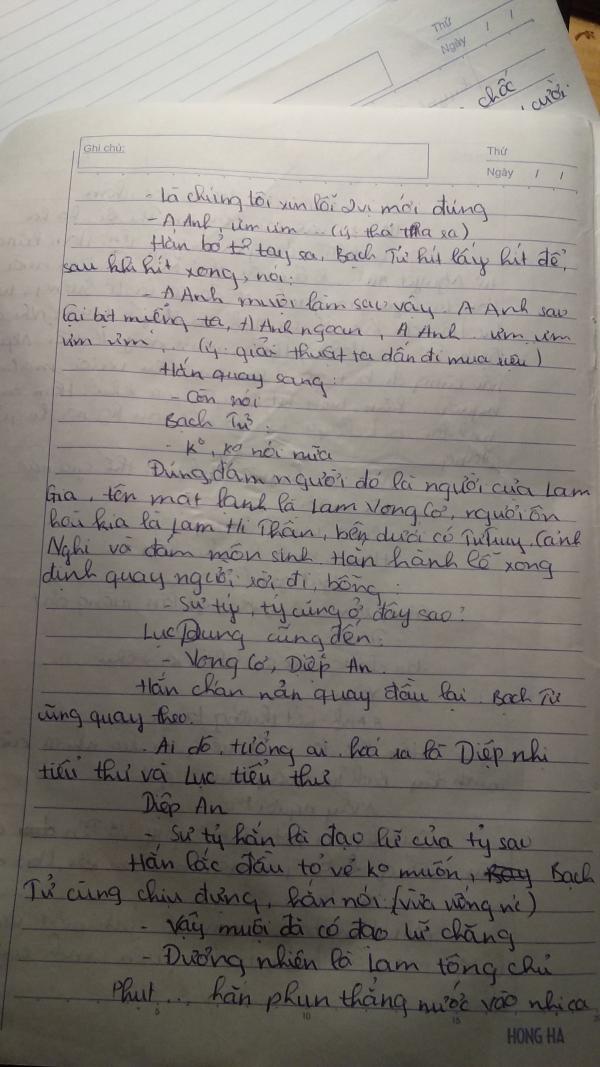 Thứ
Ngày / /
chốc
cười.
Ghi chú:
Thứ
Ngày / /
- Là chúng tôi xin lỗi 2 vị mới đúng
- A Anh, ưm ưm... (ý thả tha ra)
Hắn bỏ tay ra, Bạch Tử hít lấy hít để,
sau khi hít xong, nói:
- A Anh muội làm sao vậy. A Anh sao
lại bịt miếng ta, A Anh ngoan, A Anh ưm ưm
ưm ưm... (ý: giải thuật ta dẫn đi mua)
Hắn quay sang:
- Còn nói
Bạch Tử:
- K°, ko nói nữa
Đúng, đám người đó là người của Lam
Gia, tên mặt lạnh là Lam Vong Cơ, người ôn
hoà kia là Lam Hi Thần, bên dưới có Tư Truy, Cảnh
Nghi và đám môn sinh. Hắn hành lễ xong
định quay người rời đi, bỗng:
- Sư tỷ, tỷ cũng ở đây sao?
Lục Dung cũng đến:
- Vong Cơ, Diệp An.
Hắn chán nản quay đầu lại. Bạch Tử
cũng quay theo.
- Ai đó, tưởng ai hoá ra là Diệp nhị
tiểu thư và Lục tiểu thư
Diệp An
- Sư tỷ hắn là đạo lữ của tỷ sao
Hắn lắc đầu tỏ vẻ ko muốn, Bạch
Tử cũng chịu đựng, hắn nói (vừa uống nc)
- Vậy muội đã có đạo lữ chăng
- Đương nhiên là Lam tông chủ
Phụt... hắn phun thẳng nước vào nhị ca
5 10 15
HONG HA